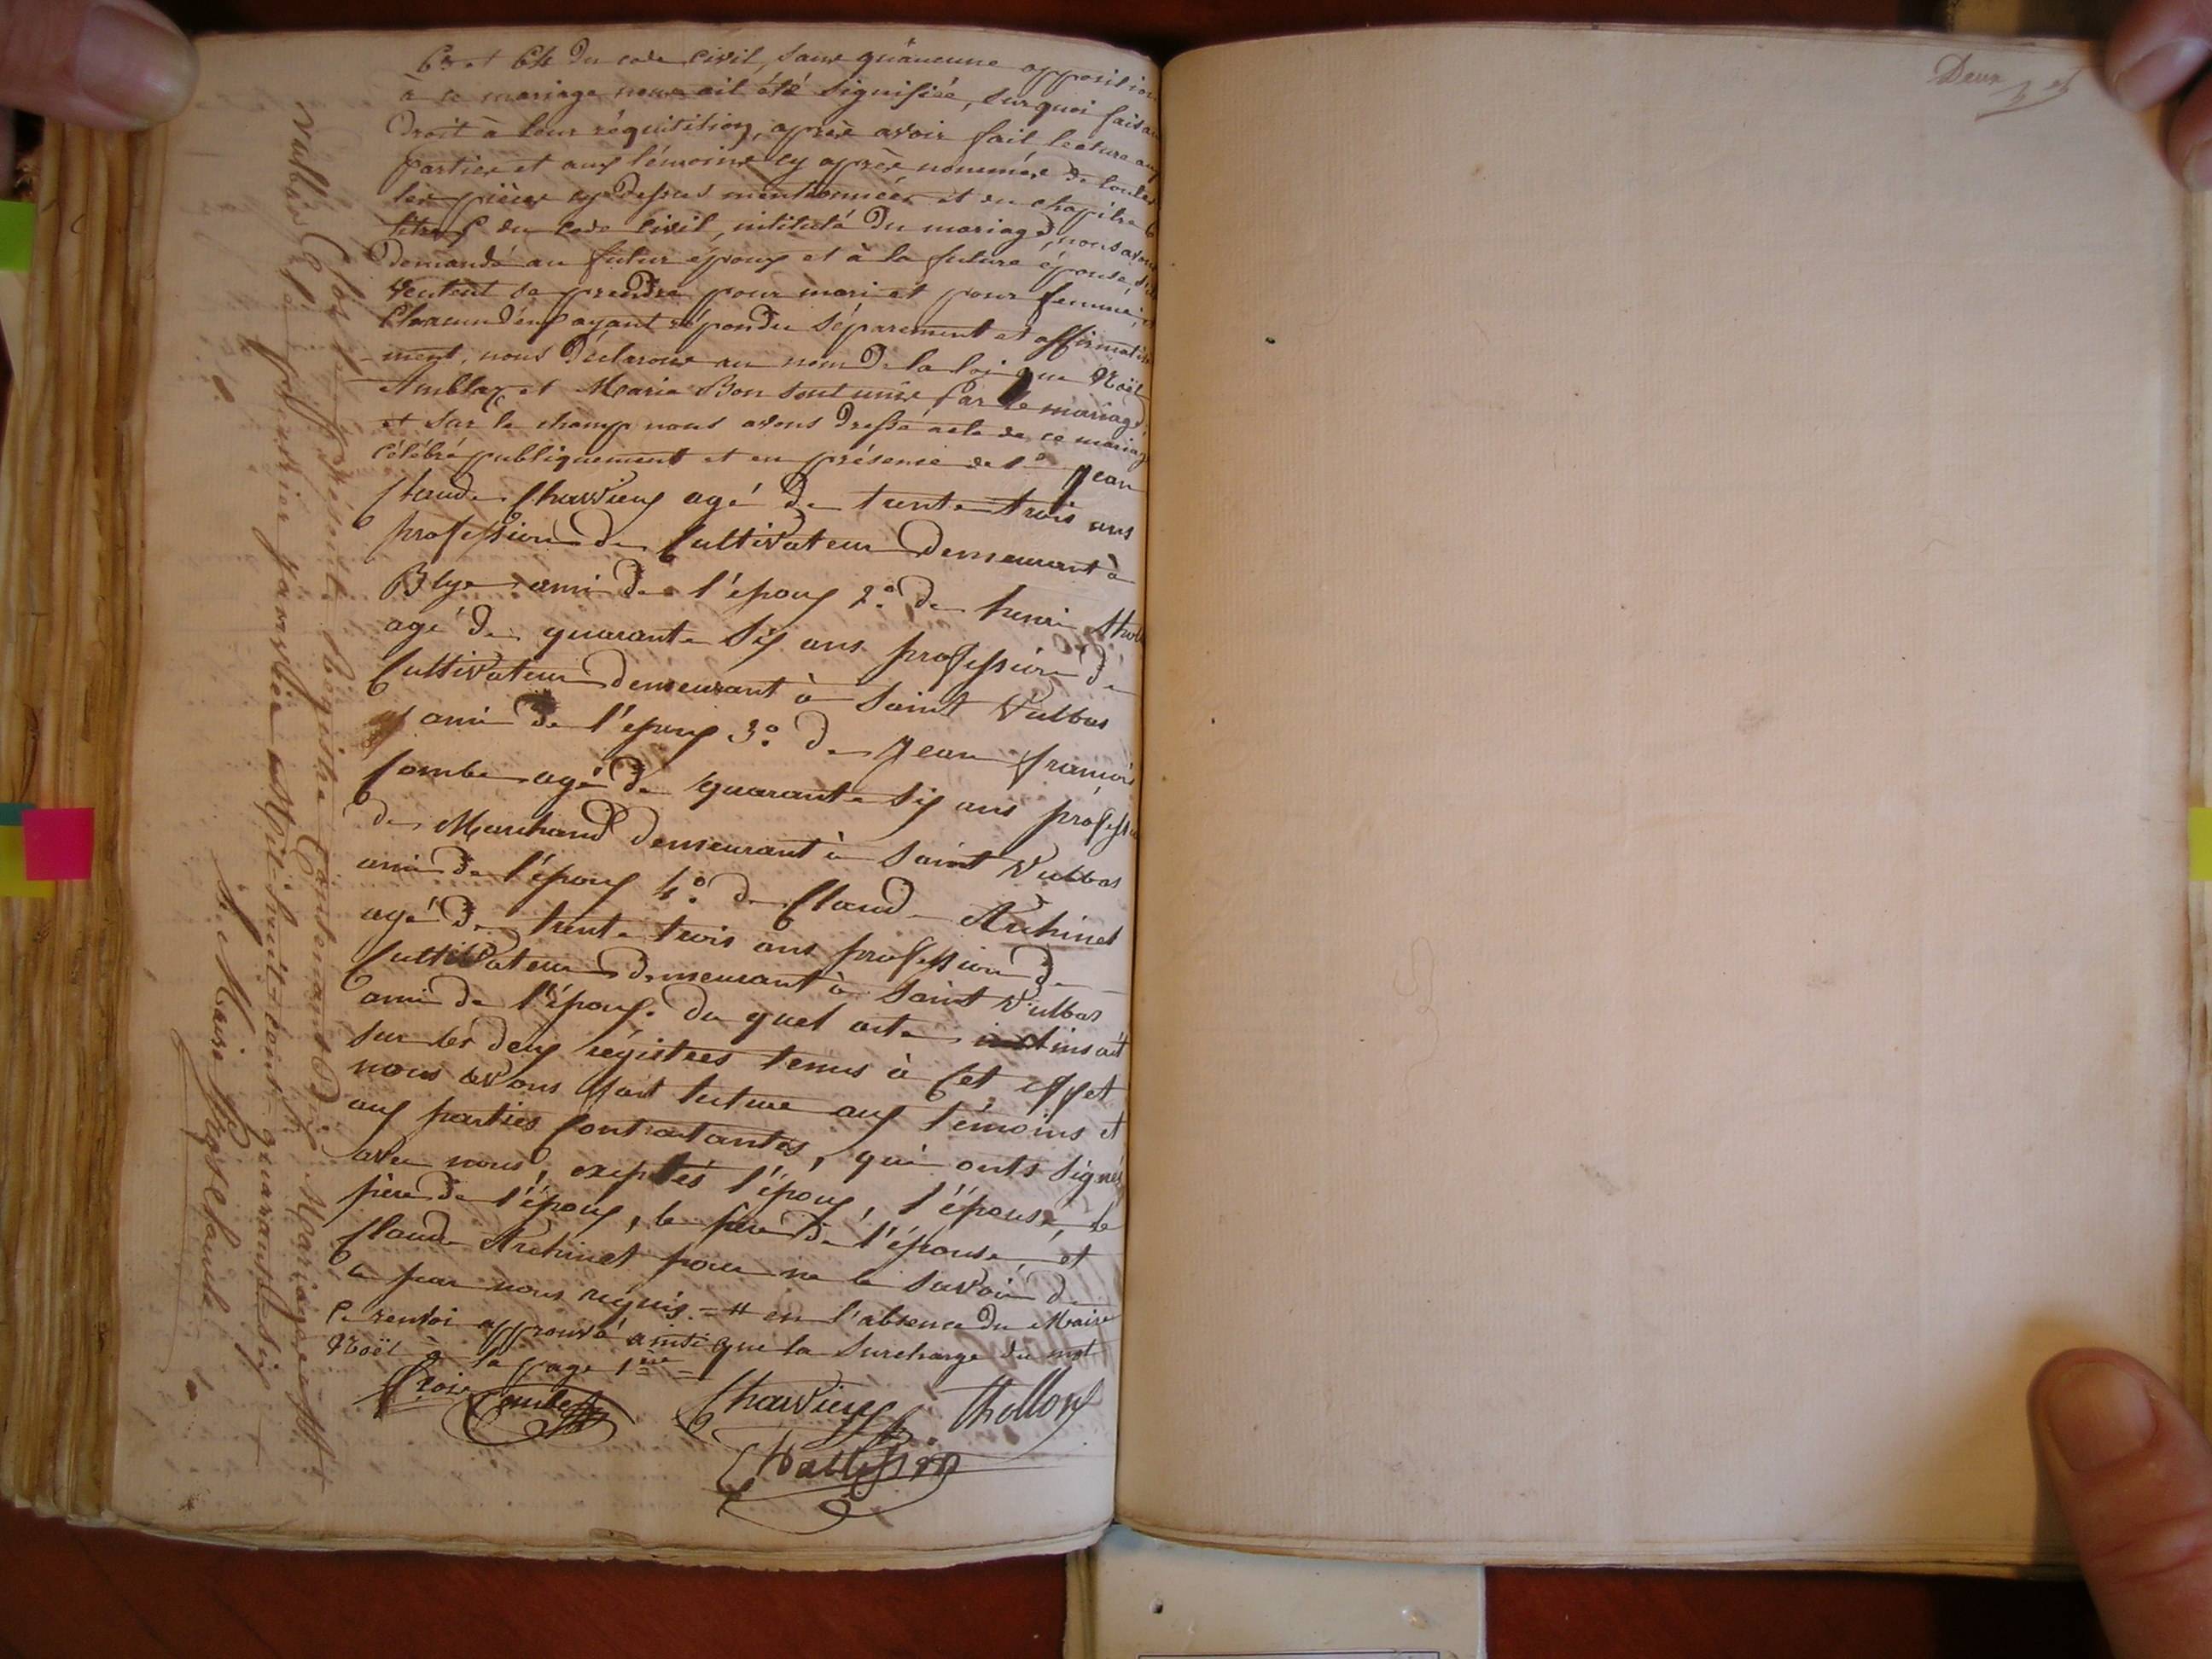 63 et 64 du code civil, sans qu'aucune opposition
à ce mariage nous ait été signifiée, sur quoi faisant
Droit à leur réquisition, après avoir fait lecture aux
parties et aux témoins cy après nommés de toutes
les pièces cy dessus mentionnées et du chapitre 6
titre 5 du code civil, intitulé Du mariage, nous avons
Demandé au futur époux et à la future épouse s'ils
veulent se prendre pour mari et pour femme, et
Chacun d'eux ayant répondu séparement et affirmative
-ment, nous Déclarons au nom De la loi que Noël
Amblax et Marie Bon sont unis Par le mariage
et sur le champ nous avons Dressé acte de ce mariage
célébré publiquement et en présence de 1° Jean
Claude Charvieux agé de trente trois ans
profession de Cultivateur Demeurant à
Blye ami de l'époux 2° de henri
agé de quarante six ans profession de
Cultivateur demeurant à Saint Vulbas
ami de l'époux 3° de Jean françois
Combe agé de quarante six ans profession
de Marchand demeurant à Saint Vulbas
ami de l'époux 4° de Claude Archinet
agé de trente trois ans profession de
Cultivateur demeurant à Saint Vulbas
ami de l'époux. du quel acte inscrit
sur les deux régistres tenus à cet effet
nous avons fait lecture aux témoins et
aux parties Contractantes, qui onts signés
avec nous, exeptés l'époux, l'épouse, le
père de l'époux, le père de l'épouse, et
Claude Archinet pour ne le savoir de
ce par nous requis. = # en l'absence du Maire
Ce renvoi approuvé ainsi que la surcharge du mot
Noël à la page 1ère =
Combe Charvieux thollon
Clos le présent Régistre Contenant Dix Mariages à St
Vulbas le premier janvier mil-huit-cent-quarante-six
Le Maire
Deux